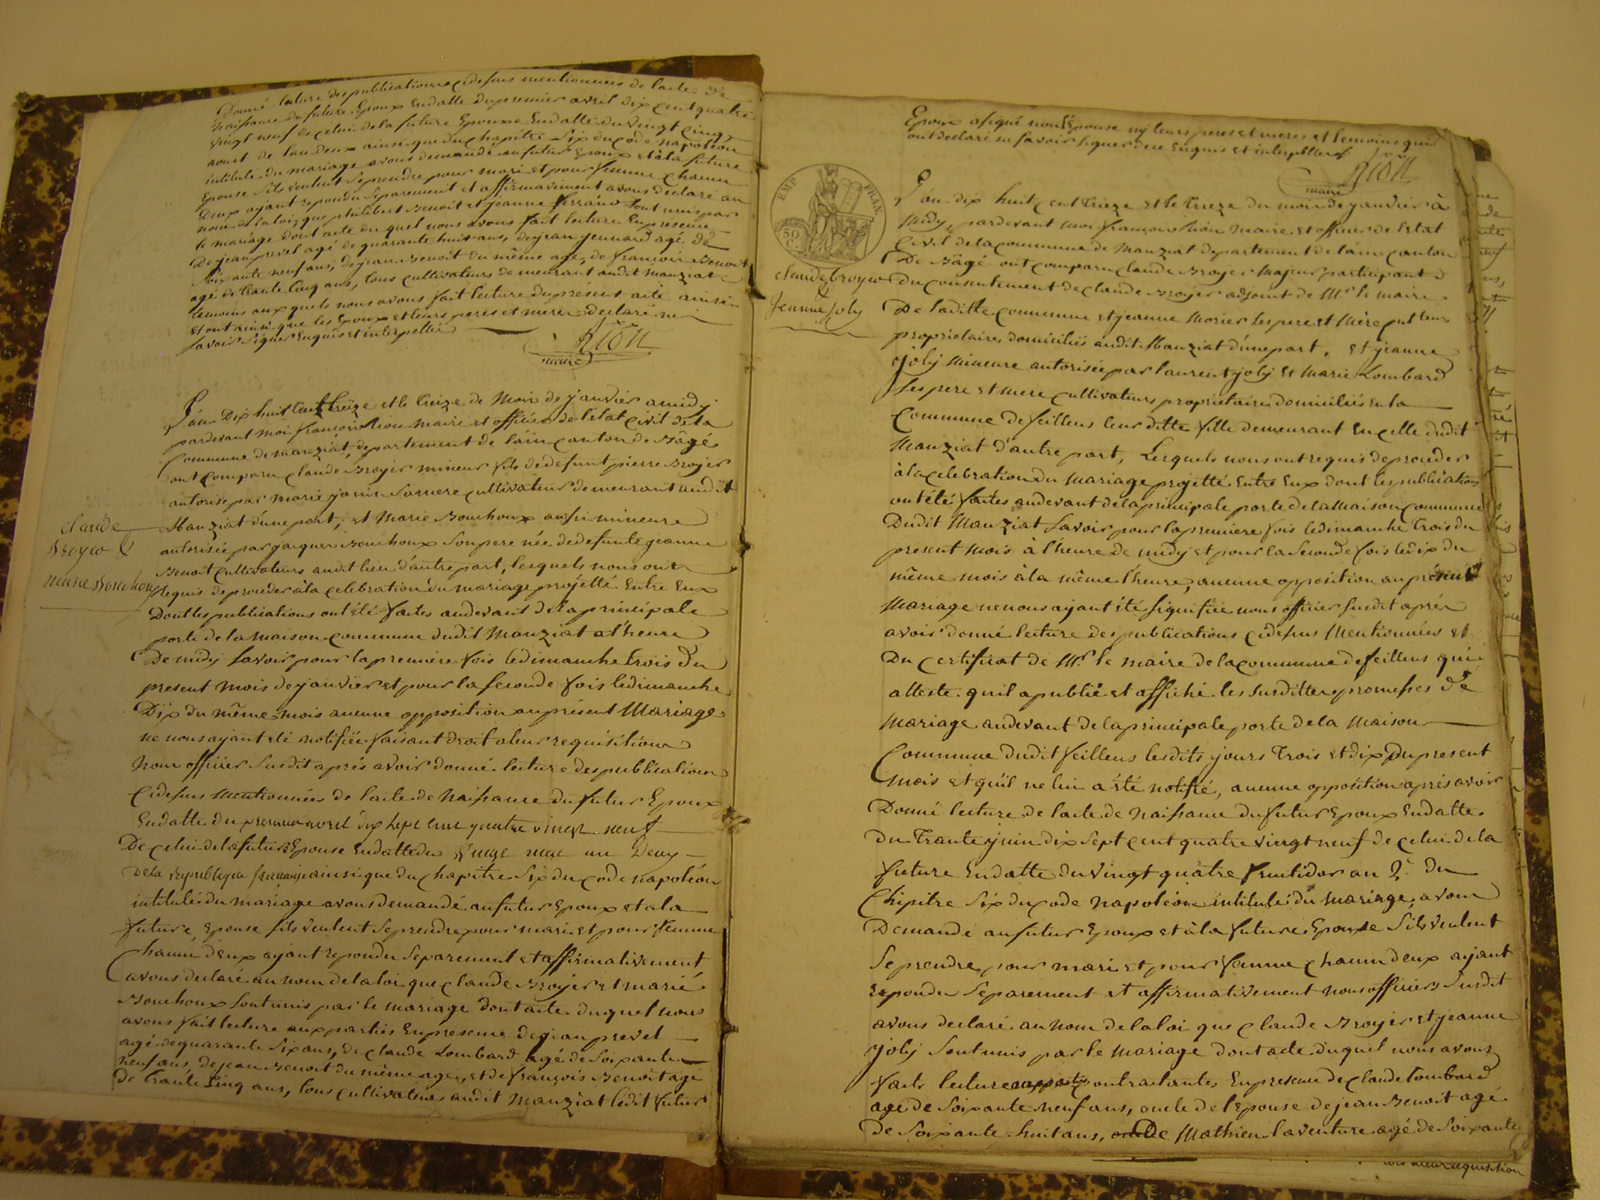 Donné lecture des publications cidessus mentionnées de l'acte de
Naissance du futur Epoux En datte du premier avril dix cent quatre
vingt neuf de celui de la future Epouse En datte du vingt cinq
aout de l'an deux ainsi que du chapitre Six du code napoléon
intitulé du mariage avons demandé au futur Epoux et à la future
Epouse Sils veulent Se prendre pour mari et pour femme chacun
Deux ayant repondu Separement et affirmativement avons declaré au
nom de la loi que philibert Benoit et jeanne ferrand Sont unis par
le mariage dont acte du quel nous avons fait lecture En présence
De jean prevel agé de quarante huit ans, de jean jennard agé de
Soixante neuf ans, de jean Benoit du même age, de francois Benoit
agé de trante Cinq ans, tous cultivateurs demeurant audit manziat
temoins aux quels nous avons fait lecture du présent acte ainsi
Et ont ainsi que les Epoux et leurs peres et mere declaré ne
Savoir Signer Enquis et interpellés
Rion
maire
L'an Dix huit Cent treize et le treize de Mois de janvier a midy
pardevant moi françois Rion Maire et officier de l'Etat Civil de la
Commune de manziat, departement de l'ain canton de Bâgé
ont comparu claude Broyer mineur fils de defunt pierre Broyer
autorisé par marie janin Sa mere cultivateur demeurant audit
Manziat d'une part, et Marie Bouchoux aussi mineure
autorisée par jacques Bouchoux Son pere née de defunte jeanne
Benoit cultivateurs audit lieu d'autre part, lesquels nous ont
Requis de proceder à la celebration du mariage projetté Entre Eux
Dont les publications ont été faites audevant de la principale
porte de la maison commune dudit Manziat a l'heure
De midy Savoir pour la premiere fois le dimanche trois du
present Mois de janvier et pour la Seconde fois le dimanche
Dix du même mois aucune opposition au présent Mariage
ne nous ayant été notifiée faisant droit a leur requisition
Nous officier Susdit après avoir donné lecture des publications
Cidessus mentionnées de l'acte de Naissance du futur Epoux
En datte du premier avril dix Sept cent quatre vingt neuf
De celui de la future Epouse En datte du vingt neuf an Deux
De la republique française ainsi que du chapitre Six du code napoléon
intitulé du mariage avons demandé au futur Epoux et a la
future Epouse Sils veulent Se prendre pour mari et pour femme
Chacun d'eux ayant repondu Separement et affirmativement
avons declaré au nom de la loi que claude Broyer et marie
Bouchoux Sont unis par le mariage dont acte du quel nous
avons fait lecture aux parties En presence de jean prevel
agé de quarante Six ans, de claude Lombard agé de Soixante
neuf ans, de jean Benoit du même age, et de françois Benoit agé
De trante cinq ans, tous cultivateurs audit Manziat ledit futur
claude
Broyer &
marie Bouchoux
Epoux a Signé non l'Epouse ny leurs peres et meres et temoins qui
ont declaré ne Savoir Signer de ce Enquis et interpellés
Rion
maire
EMP FRAN
50 C
claude broyer
&
Jeanne joly
L'an dix huit cent treize et le treize du mois de janvier à
Midy, pardevant moi françois Rion Maire et officier de l'etat
Civil de la commune de Manziat departement de l'ain canton
De Bâgé ont comparu claude Broyer Majeur participant
Du consentement de claude Broyer adjoint de Mr le maire
De laditte commune et jeanne Morier les pere et Mère qui leur
proprietaires domiciliés audit Manziat d'une part, Et jeanne
joly Mineure autorisée par laurent joly et Marie Lombard
Ses pere et mere cultivateurs proprietaires domiciliés en la
Commune de feillens leur ditte fille demeurant En celle dudit
Manziat d'autre part, Lesquels nous ont requis de proceder
à la celebration du Mariage projetté Entre Eux dont les publications
ont été faites audevant de la principale porte de la Maison commune
Dudit Manziat Savoir pour la premiere fois le dimanche trois du
present Mois à l'heure de midy et pour la Seconde fois le dix du
même mois à la même l'heure, aucune opposition au présent
Mariage ne nous ayant été Signifiée nous officier Susdit après
avoir donné lecture des publications cidessus Mentionnées et
Du certificat de Mr le maire de la commune de feillens qui
atteste qu'il a publié et affiché les Susdittes promesses de
Mariage audevant de la principale porte de la Maison
Commune dudit feillens lesdits jours trois et dix Du present
Mois et qu'il ne lui a été notifié, aucune opposition après avoir
Donné lecture de l'acte de Naissance du futur Epoux En datte
Du trante juin dix Sept cent quatre vingt neuf de celui de la
future En datte du vingt quatre fructidor an 2e Du
Chipitre Six du code napoléon intitulé du Mariage, avons
Demandé au futur Epoux et à la future Epouse Sils veulent
Se prendre pour mari et pour femme chacun d'eux ayant
repondu Separement et affirmativement nous officiers Susdit
avons declaré au nom de la loi que claude Broyer et jeanne
joly Sont unis par le Mariage dont acte duquel nous avons
faits lecture aux parties contractantes En presence de claude Lombard
agé de Soixante neuf ans, oncle de l'Epouse de jean Benoit agé
De Soixante huit ans, de Mathieu laventure agé de Soixante
requisition